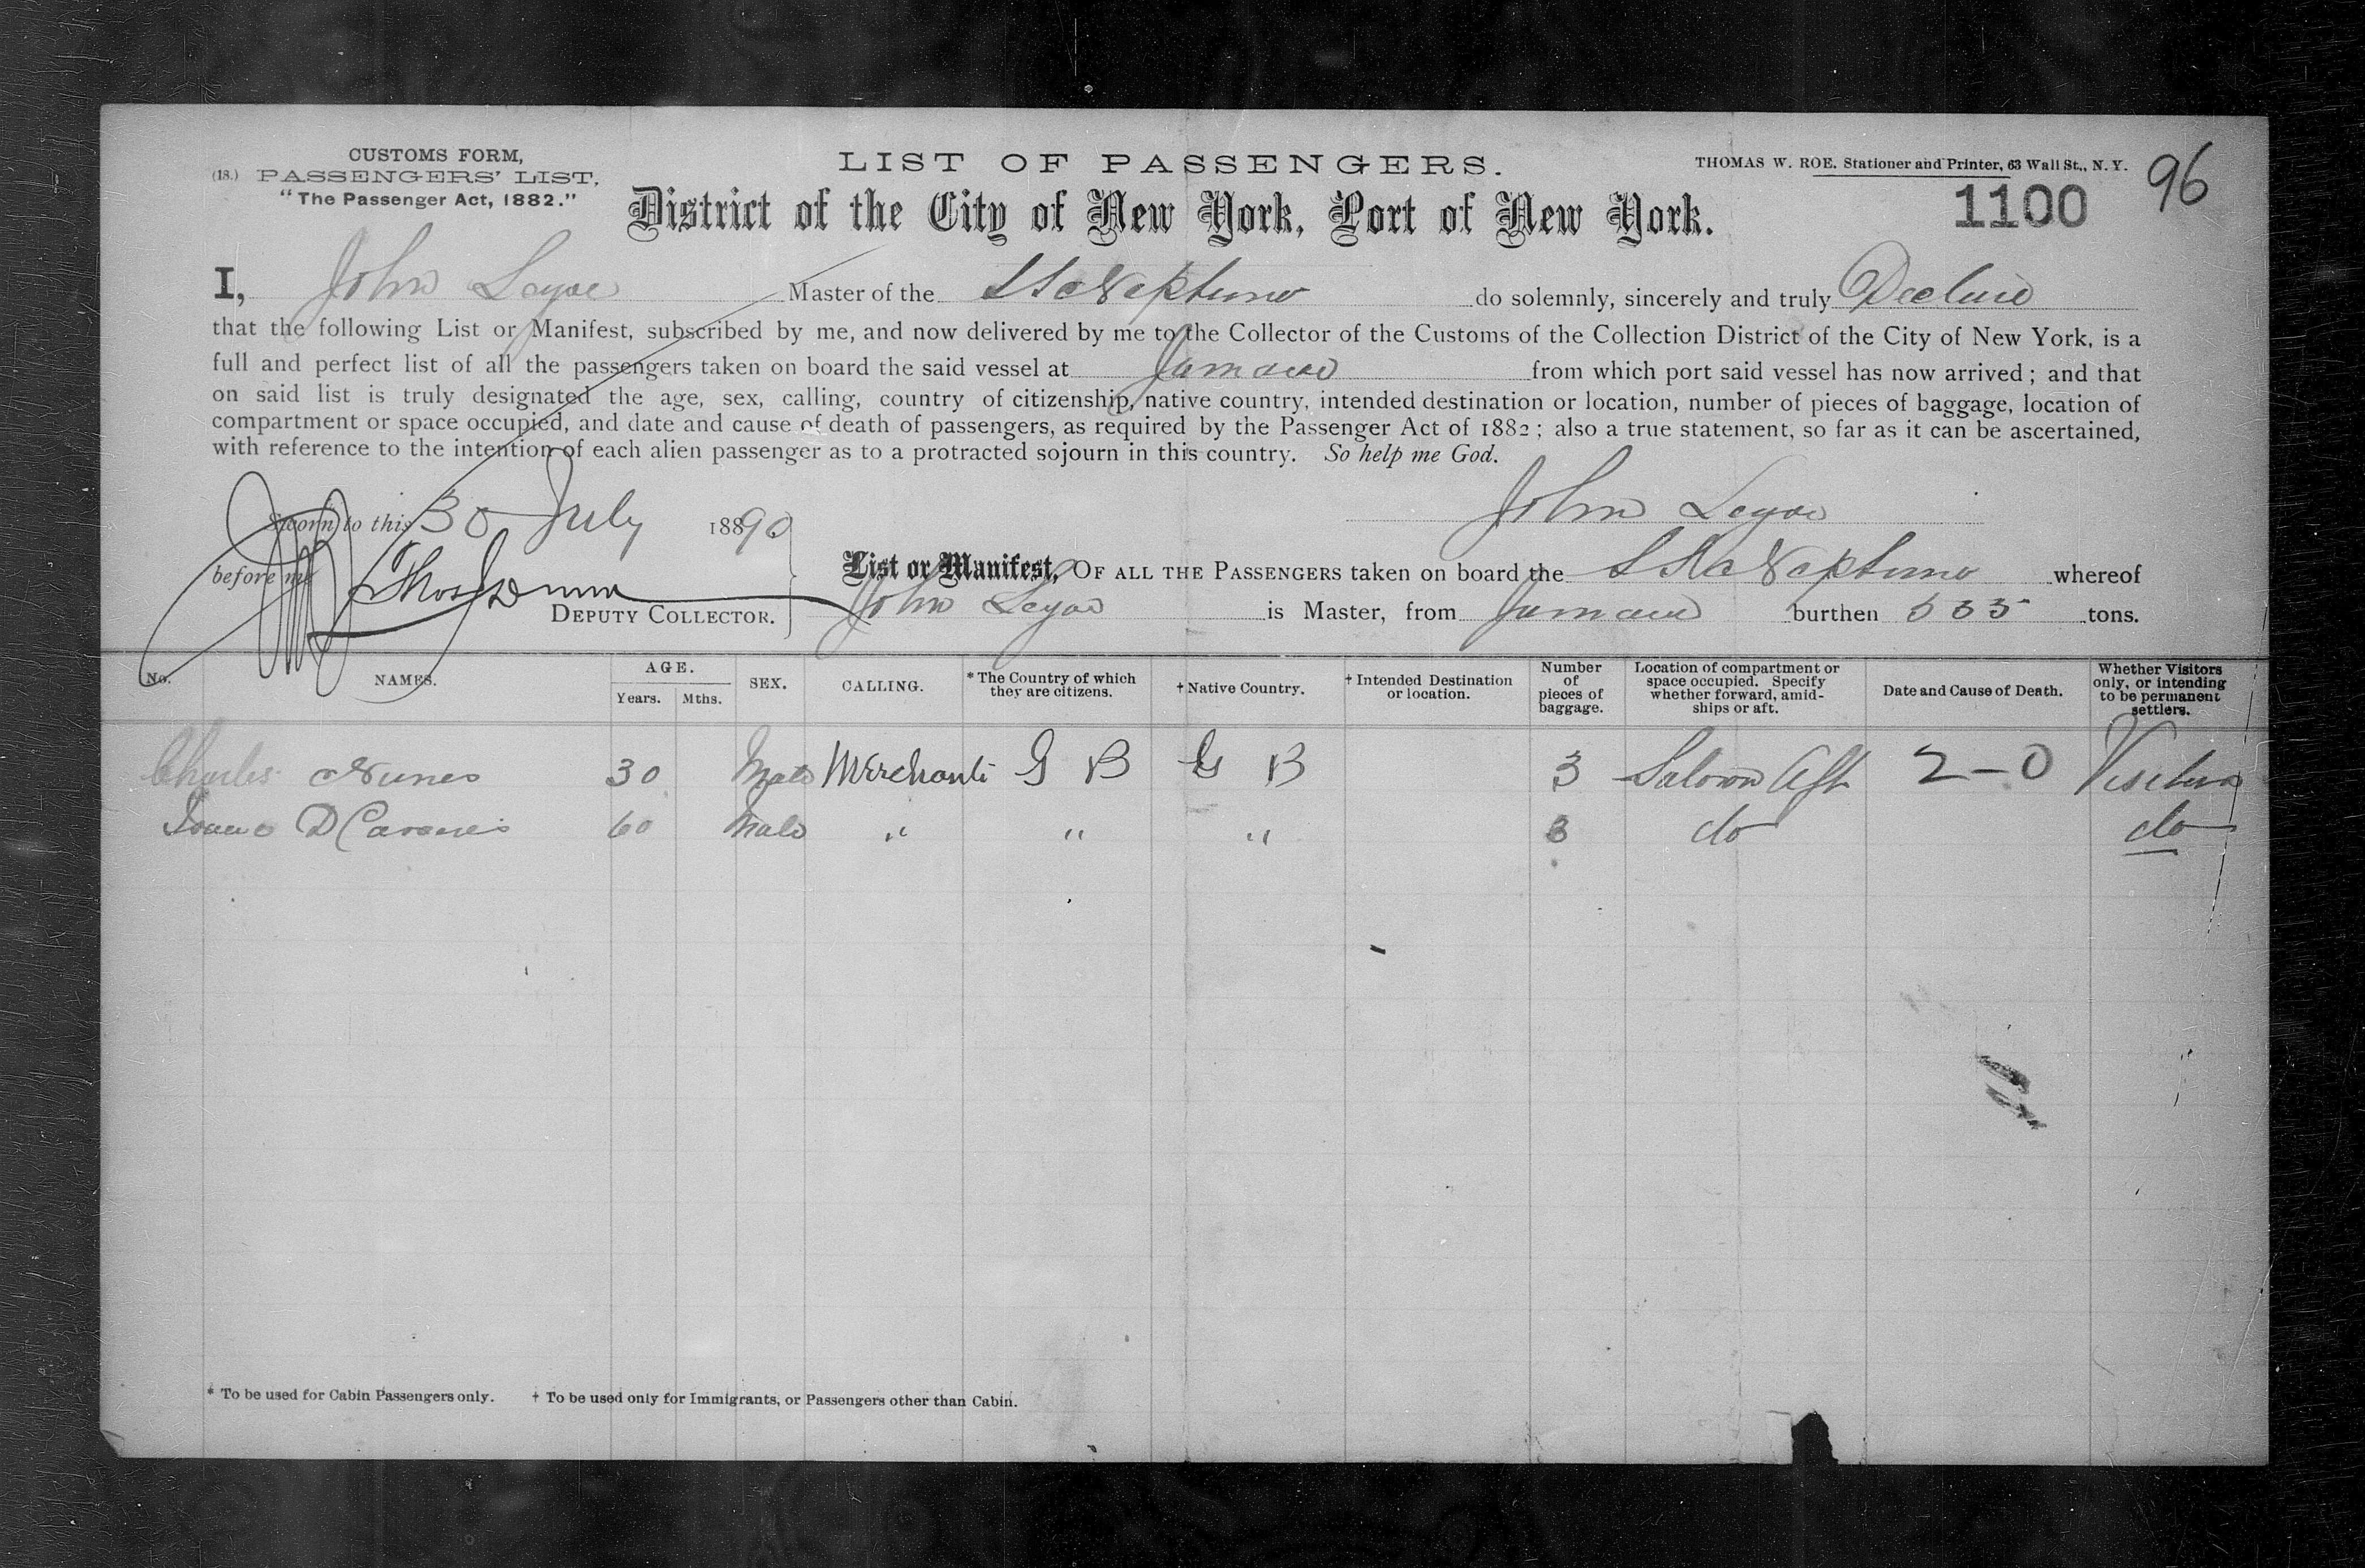 CUSTOMS FORM,
(18.) PASSENGERS' LIST,
"The Passenger Act, 1882."
LIST OF PASSENGERS.
THOMAS W. ROE. Stationer and Printer, 63 Wall St., N. Y.
96
District of the City of New York, Port of New York.
1100
I, John Master of the Neptuno do solemnly, sincerely and truly Declare
that the following List or Manifest, subscribed by me, and now delivered by me to the Collector of the Customs of the Collection District of the City of New York, is a
full and perfect list of all the passengers taken on board the said vessel at Jamaica from which port said vessel has now arrived; and that
on said list is truly designated the age, sex, calling, country of citizenship, native country, intended destination or location, number of pieces of baggage, location of
compartment or space occupied, and date and cause of death of passengers, as required by the Passenger Act of 1882; also a true statement, so far as it can be ascertained,
with reference to the intention of each alien passenger as to a protracted sojourn in this country. So help me God.
Sworn to this 30 July 1890
John
before me Thos
DEPUTY COLLECTOR.
List or Manifest, OF ALL THE PASSENGERS taken on board the Neptuno whereof
John is Master, from Jamaica burthen 535 tons.
No. NAMES. AGE. Years. Mths. SEX. CALLING. * The Country of which they are citizens. † Native Country. † Intended Destination or location. Number of pieces of baggage. Location of compartment or space occupied. Specify whether forward, amidships or aft. Date and Cause of Death. Whether Visitors only, or intending to be permanent settlers.
Charles Nunes 30 Male Merchant G B G B 3 Saloon Aft 2-0 Visitors
60 Male " " " 3 do do
* To be used for Cabin Passengers only. † To be used only for Immigrants, or Passengers other than Cabin.